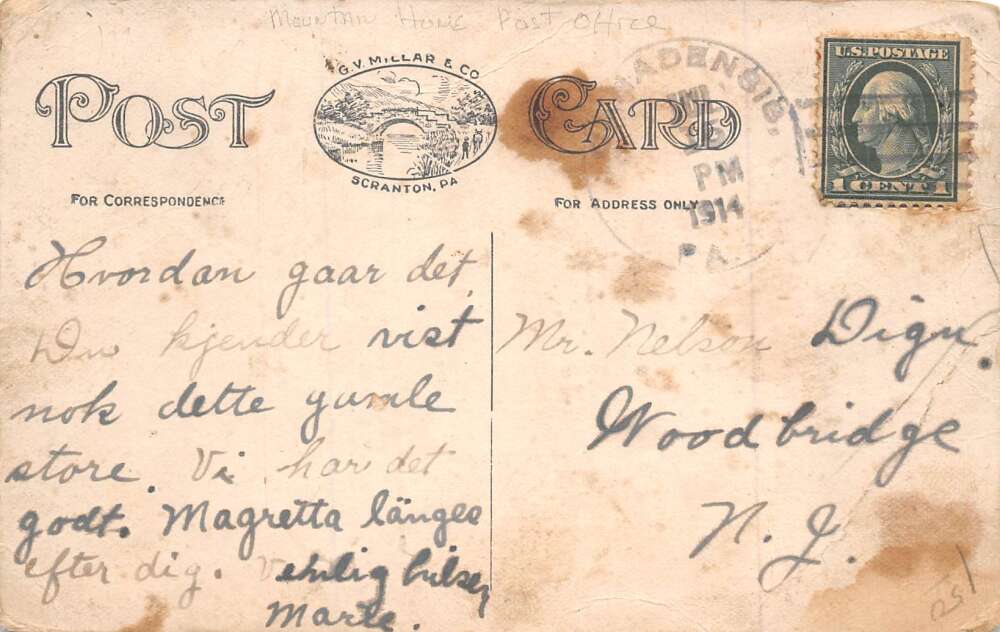 Mountain Home Post Office
POST CARD
G.V. MILLAR & CO.
SCRANTON, PA
FOR CORRESPONDENCE
FOR ADDRESS ONLY
CANADENSIS,
PM
1914
PA.
U.S. POSTAGE
1 CENT 1
Hvordan gaar det,
Du kjender vist
nok dette gamle
store. Vi har det
godt. Magretta länges
efter dig. Venlig hilsen
Marie.
Mr. Nelson Dign.
Woodbridge
N. J.